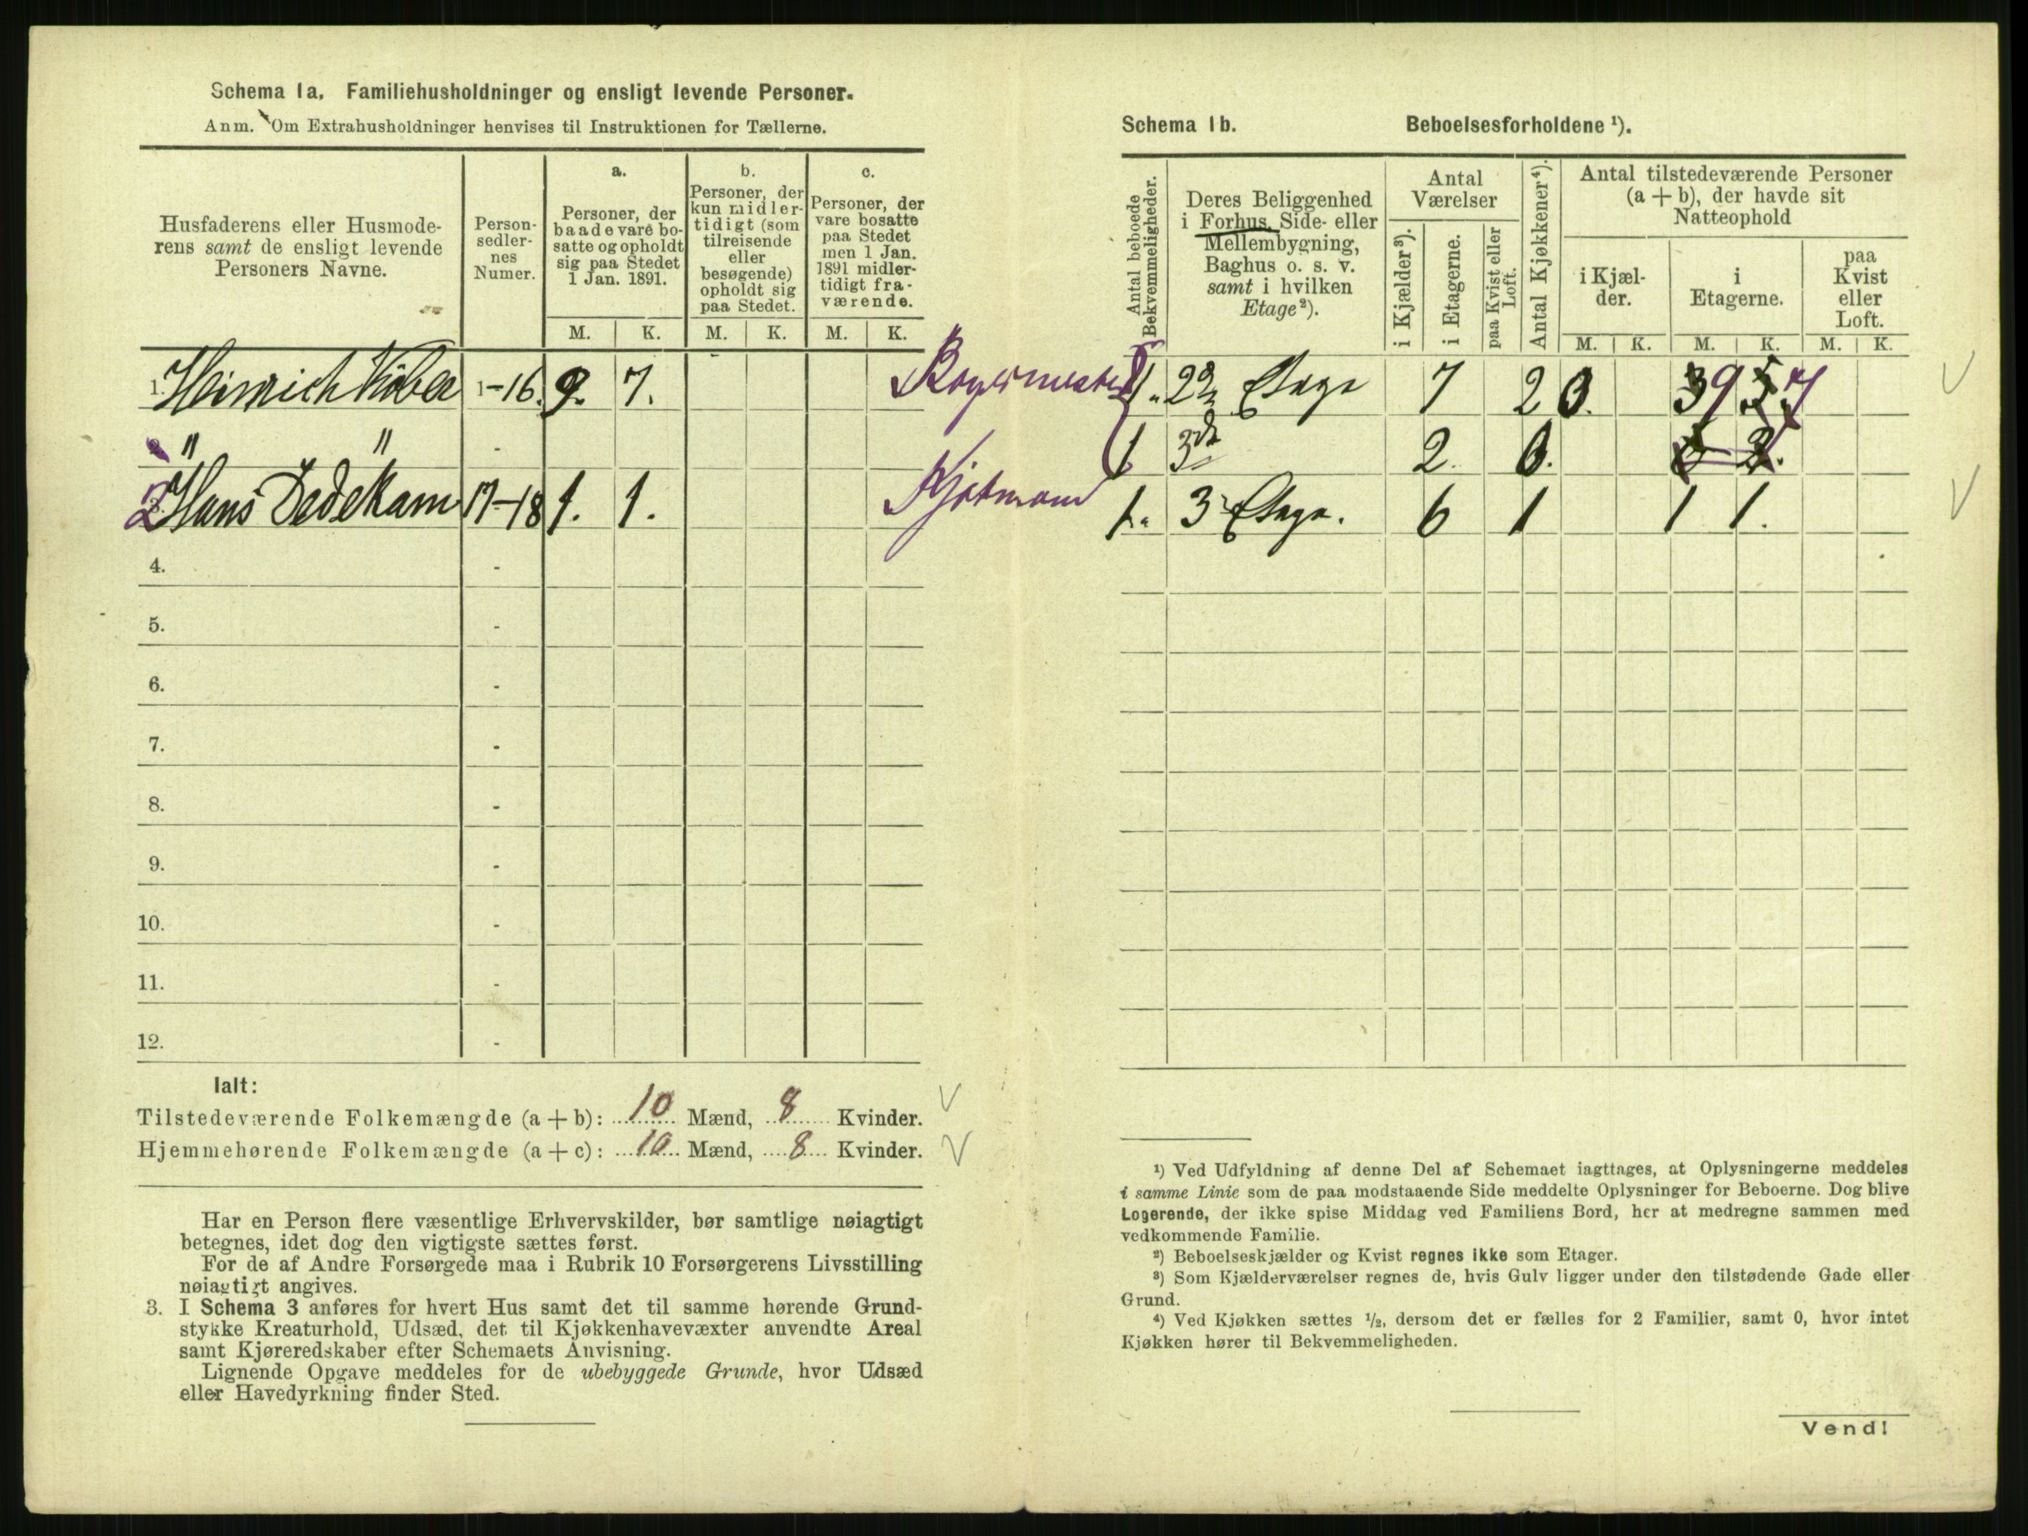 Schema 1a. Familiehusholdninger og ensligt levende Personer.
Anm. Om Extrahusholdninger henvises til Instruktionen for Tællerne.
Husfaderens eller Husmode-
rens samt de ensligt levende
Personers Navne.
Person-
sedler-
nes
Numer.
a.
Personer, der
baade vare bo-
satte og opholdt
sig paa Stedet
1 Jan. 1891.
b.
Personer, der
kun midler-
tidigt (som
tilreisende
eller
besøgende)
opholdt sig
paa Stedet.
c.
Personer, der
vare bosatte
paa Stedet
men 1 Jan.
1891 midler-
tidigt fra-
værende.
M. K. M. K. M. K.
1. Heinrich 1-16. 9. 7.
" " -
2 Hans Dedekam 17-18 1. 1.
4. -
5. -
6. -
7. -
8. -
9. -
10. -
11. -
12. -
Ialt:
Tilstedeværende Folkemængde (a + b): 10 Mænd, 8 Kvinder.
Hjemmehørende Folkemængde (a + c): 10 Mænd, 8 Kvinder.
Har en Person flere væsentlige Erhvervskilder, bør samtlige nøiagtigt
betegnes, idet dog den vigtigste sættes først.
For de af Andre Forsørgede maa i Rubrik 10 Forsørgerens Livsstilling
nøiagtigt angives.
3. I Schema 3 anføres for hvert Hus samt det til samme hørende Grund-
stykke Kreaturhold, Udsæd, det til Kjøkkenhavevæxter anvendte Areal
samt Kjøreredskaber efter Schemaets Anvisning.
Lignende Opgave meddeles for de ubebyggede Grunde, hvor Udsæd
eller Havedyrkning finder Sted.
Schema 1b. Beboelsesforholdene ¹).
Antal beboede
Bekvemmeligheder.
Deres Beliggenhed
i Forhus, Side- eller
Mellembygning,
Baghus o. s. v.
samt i hvilken
Etage²).
Antal
Værelser
i Kjælder³).
i Etagerne.
paa Kvist eller
Loft.
Antal Kjøkkener⁴).
Antal tilstedeværende Personer
(a + b), der havde sit
Natteophold
i Kjæl-
der.
i
Etagerne.
paa
Kvist
eller
Loft.
M. K. M. K. M. K.
1. 2 Etage 7 2 9 7
1 3 2. 0.
1. 3 Etage. 6 1 1 1.
¹) Ved Udfyldning af denne Del af Schemaet iagttages, at Oplysningerne meddeles
i samme Linie som de paa modstaaende Side meddelte Oplysninger for Beboerne. Dog blive
Logerende, der ikke spise Middag ved Familiens Bord, her at medregne sammen med
vedkommende Familie.
²) Beboelseskjælder og Kvist regnes ikke som Etager.
³) Som Kjælderværelser regnes de, hvis Gulv ligger under den tilstødende Gade eller
Grund.
⁴) Ved Kjøkken sættes ½, dersom det er fælles for 2 Familier, samt 0, hvor intet
Kjøkken hører til Bekvemmeligheden.
Vend!